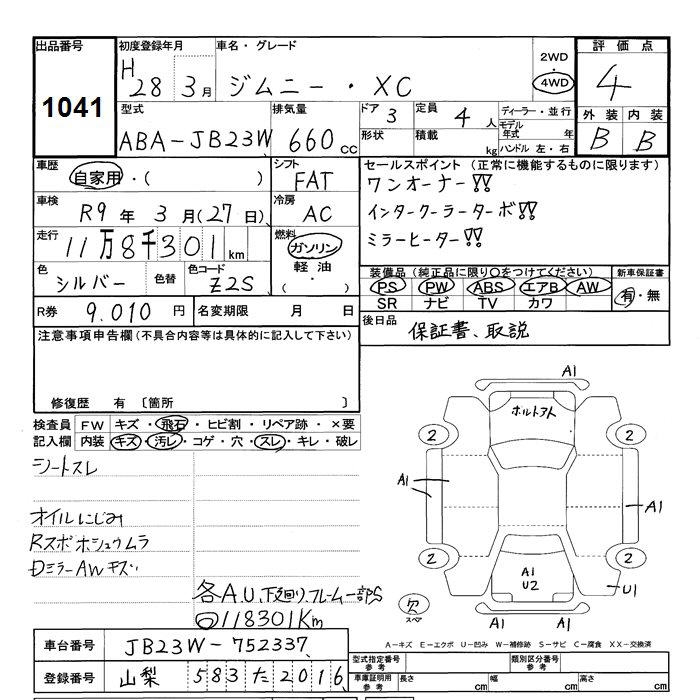 出品番号
1041
初度登録年月
H28 3月
車名・グレード
ジムニー・XC
2WD
4WD
評価点
4
外装 内装
B B
型式
ABA-JB23W
排気量
660 cc
ドア 3
定員 4 人
ディーラー・並行
モデル年式 年
形状
積載 kg
ハンドル 左・右
車歴
自家用・( )
シフト
FAT
車検
R9年 3月(27日)
冷房
AC
走行
11万8千301km
燃料
ガソリン
軽油
( ・ )
色
シルバー
色替
色コード
Z2S
R券 9.010 円
名変期限 月 日
セールスポイント (正常に機能するものに限ります)
ワンオーナー!!
インタークーラーターボ!!
ミラーヒーター!!
装備品(純正品に限り○をつけてください)
新車保証書
PS PW ABS エアB AW
SR ナビ TV カワ
有・無
後日品
保証書、取説
注意事項申告欄(不具合内容等は具体的に記入して下さい)
修復歴 有 〔箇所 〕
検査員記入欄
FW キズ・飛石・ヒビ割・リペア跡・×要
内装 キズ・汚レ・コゲ・穴・スレ・キレ・破レ
シートスレ
オイルにじみ
Rスポホシュウムラ
DミラーAWキズ
各A.U,下廻り,フレーム一部S
118301Km
A1
2
2
A1
A1
2
2
A1
U2
U1
欠
スペア
A1
A-キズ E-エクボ U-凹み W-補修跡 S-サビ C-腐食 XX-交換済
車台番号 JB23W-752337
登録番号 山梨 583 た 2016
型式指定番号
参考
類別区分番号
参考
車庫証明用
参考
長さ cm
幅 cm
高さ cm